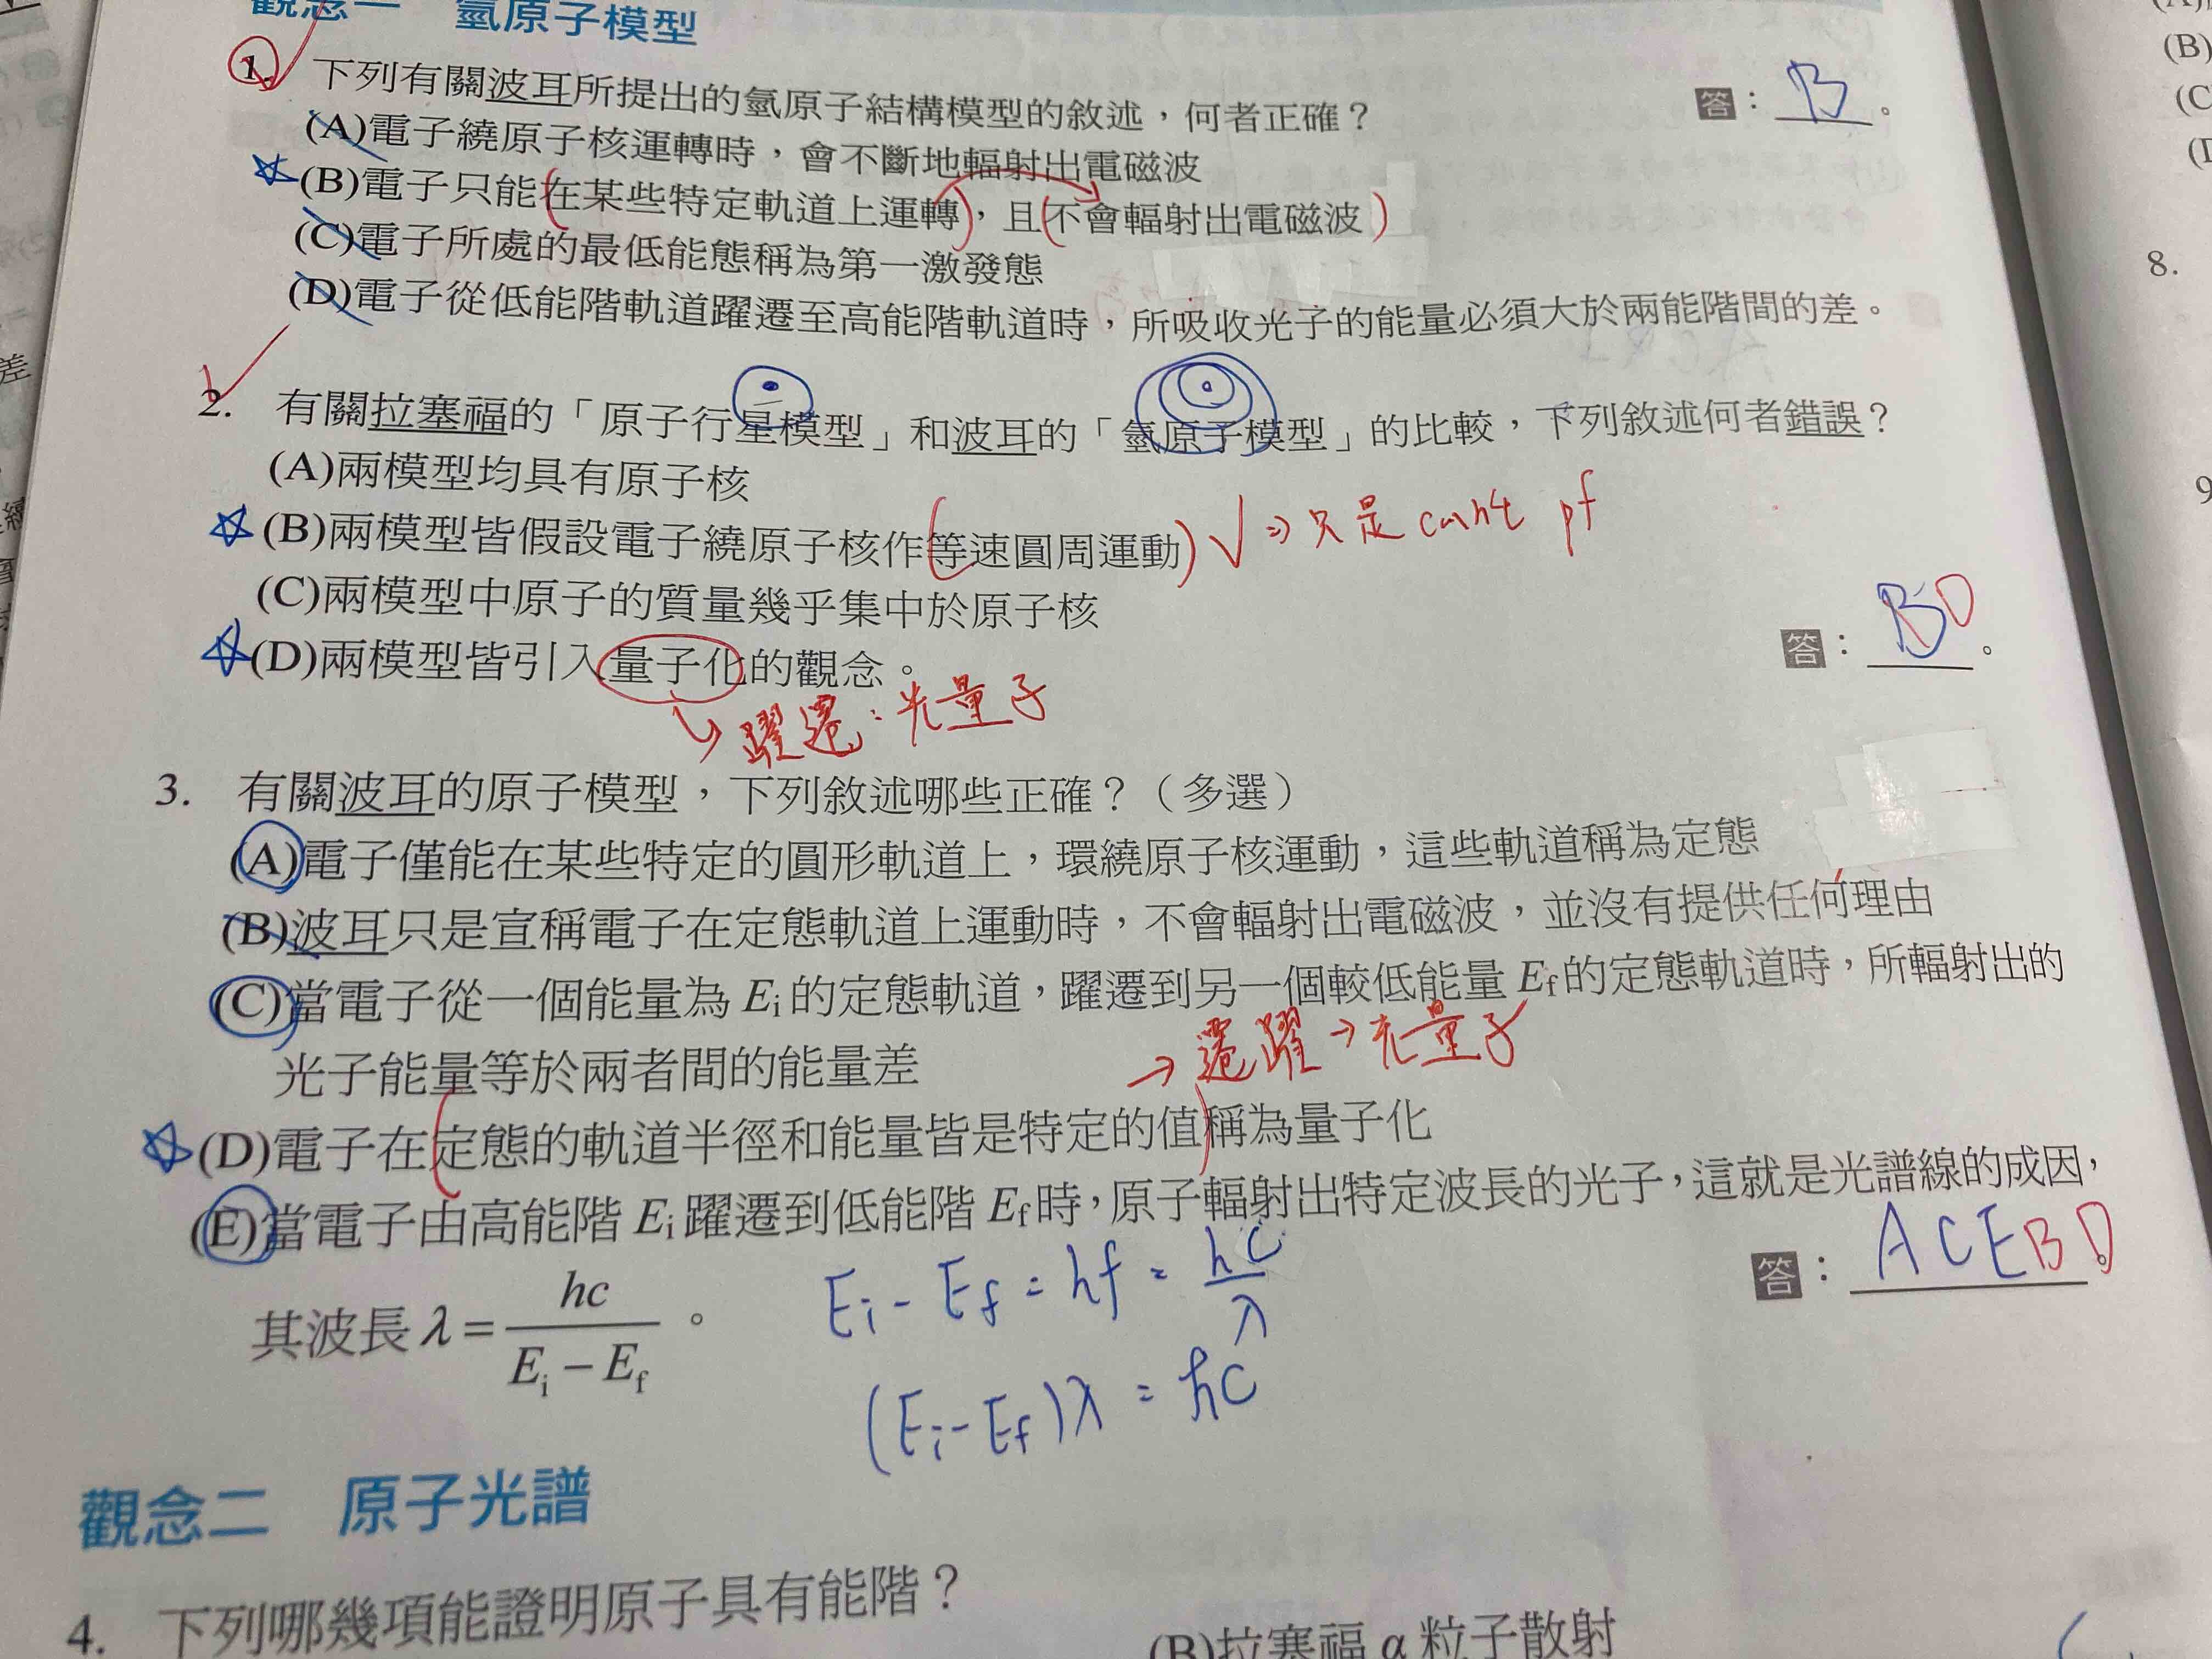 觀念一 氫原子模型
1. 下列有關波耳所提出的氫原子結構模型的敘述，何者正確？ 答：B。
(A)電子繞原子核運轉時，會不斷地輻射出電磁波
(B)電子只能在某些特定軌道上運轉，且不會輻射出電磁波
(C)電子所處的最低能態稱為第一激發態
(D)電子從低能階軌道躍遷至高能階軌道時，所吸收光子的能量必須大於兩能階間的差。
2. 有關拉塞福的「原子行星模型」和波耳的「氫原子模型」的比較，下列敘述何者錯誤？
(A)兩模型均具有原子核
(B)兩模型皆假設電子繞原子核作等速圓周運動 ✓ ⇒ 只是 can't pf
(C)兩模型中原子的質量幾乎集中於原子核
(D)兩模型皆引入量子化的觀念。 答：BD。
↳ 躍遷：光量子
3. 有關波耳的原子模型，下列敘述哪些正確？（多選）
(A)電子僅能在某些特定的圓形軌道上，環繞原子核運動，這些軌道稱為定態
(B)波耳只是宣稱電子在定態軌道上運動時，不會輻射出電磁波，並沒有提供任何理由
(C)當電子從一個能量為 Ei 的定態軌道，躍遷到另一個較低能量 Ef 的定態軌道時，所輻射出的
光子能量等於兩者間的能量差
→ 遷躍 → 光量子
(D)電子在定態的軌道半徑和能量皆是特定的值稱為量子化
(E)當電子由高能階 Ei 躍遷到低能階 Ef 時，原子輻射出特定波長的光子，這就是光譜線的成因，
其波長 λ = hc / (Ei − Ef)。 答：ACEBD。
Ei - Ef = hf = hc/λ
(Ei - Ef)λ = hc
觀念二 原子光譜
4. 下列哪幾項能證明原子具有能階？
(B)拉塞福 α 粒子散射
(B)
(C
8.
9
差